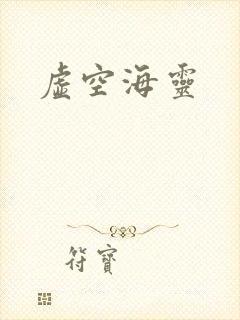 虛空海靈
符寶